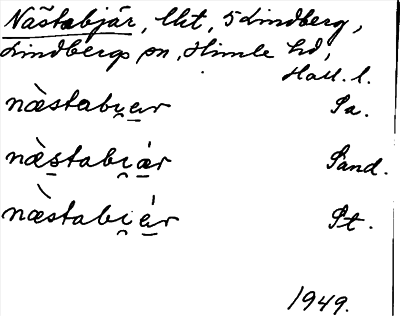 Nästabjär, lht, 5 Lindberg,
Lindbergs sn, Himle hd,
Hall. l.
næ̀stabi̯ær Sa.
næ̀stabi̯ǽr Sand.
næ̀stabi̯ǽr St.
1949.